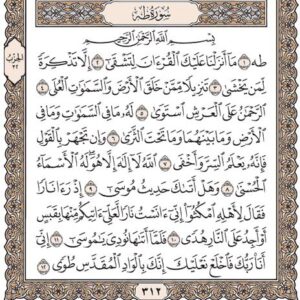 سُورَةُ طه
الجزء
بِسْمِ اللَّهِ الرَّحْمَٰنِ الرَّحِيمِ
طه ١ مَا أَنزَلْنَا عَلَيْكَ الْقُرْءَانَ لِتَشْقَىٰ ٢ إِلَّا تَذْكِرَةً
لِّمَن يَخْشَىٰ ٣ تَنزِيلًا مِّمَّنْ خَلَقَ الْأَرْضَ وَالسَّمَٰوَٰتِ الْعُلَى ٤
الرَّحْمَٰنُ عَلَى الْعَرْشِ اسْتَوَىٰ ٥ لَهُ مَا فِي السَّمَٰوَٰتِ وَمَا فِي
الْأَرْضِ وَمَا بَيْنَهُمَا وَمَا تَحْتَ الثَّرَىٰ ٦ وَإِن تَجْهَرْ بِالْقَوْلِ
فَإِنَّهُ يَعْلَمُ السِّرَّ وَأَخْفَى ٧ اللَّهُ لَا إِلَٰهَ إِلَّا هُوَ لَهُ الْأَسْمَاءُ
الْحُسْنَىٰ ٨ وَهَلْ أَتَىٰكَ حَدِيثُ مُوسَىٰ ٩ إِذْ رَءَا نَارًا
فَقَالَ لِأَهْلِهِ امْكُثُوا إِنِّي ءَانَسْتُ نَارًا لَّعَلِّي ءَاتِيكُم مِّنْهَا بِقَبَسٍ
أَوْ أَجِدُ عَلَى النَّارِ هُدًى ١٠ فَلَمَّا أَتَىٰهَا نُودِيَ يَٰمُوسَىٰ ١١
إِنِّي أَنَا رَبُّكَ فَاخْلَعْ نَعْلَيْكَ إِنَّكَ بِالْوَادِ الْمُقَدَّسِ طُوًى ١٢
٣١٢